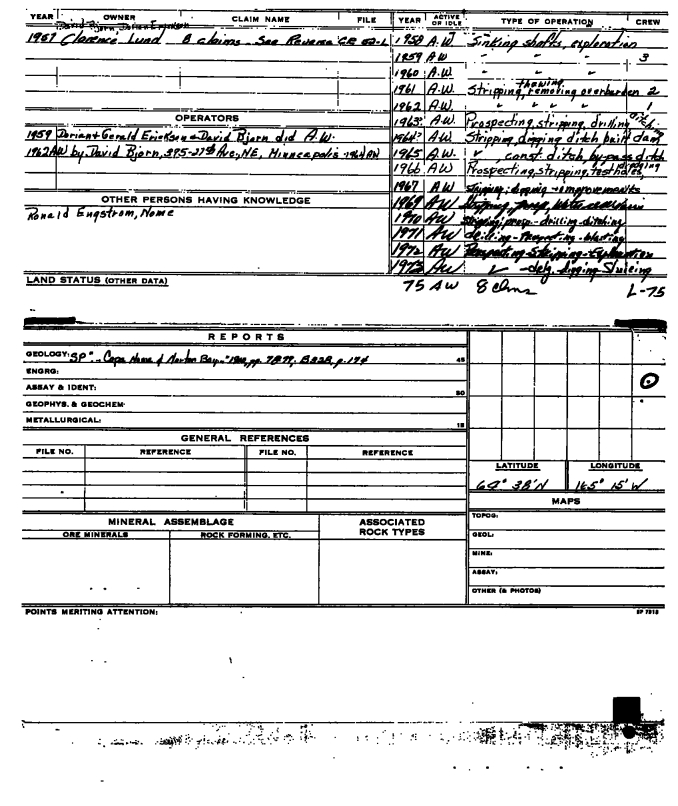 YEAR OWNER CLAIM NAME FILE YEAR ACTIVE OR IDLE TYPE OF OPERATION CREW
David Bjorn, Dorian Erickson
1957 Clarence Lund 8 claims - See Reverse CR 52-L 1958 A.W. Sinking shafts, exploration
1959 AW " " " 3
1960 A.W. " "
thawing
1961 A.W. Stripping, removing overburden 2
1962 A.W. " " " " 1
OPERATORS
1963 A.W. Prospecting, stripping, drilling, ditching
1959 Dorian & Gerald Erickson & David Bjorn did A.W.
1964 AW Stripping, digging ditch built dam
1962 AW by David Bjorn, 395-27th Ave, NE, Minneapolis 1964 AW
1965 A.W. " , const. ditch, by-pass ditch
1966 AW Prospecting, stripping, testholes, digging
1967 AW stripping, digging & improvements
OTHER PERSONS HAVING KNOWLEDGE
1969 AW Stripping, prosp,
Ronald Engstrom, Nome
1970 AW stripping, prosp - drilling - ditching
1971 AW drilling - Prospecting - blasting
1972 AW Prospecting - Stripping - Exploration
1973 AW " - digging - Sluicing
LAND STATUS (OTHER DATA)
75 AW 8 clms L-75
REPORTS
GEOLOGY: SP "-- Cape Nome & Norton Bay--" 1900, pp. 78, 79, B 328, p. 174 45
ENGRG:
ASSAY & IDENT: 50
GEOPHYS. & GEOCHEM:
METALLURGICAL: 15
GENERAL REFERENCES
FILE NO. REFERENCE FILE NO. REFERENCE
LATITUDE LONGITUDE
64° 38' N 165° 15' W
MAPS
TOPOG:
MINERAL ASSEMBLAGE ASSOCIATED ROCK TYPES
ORE MINERALS ROCK FORMING, ETC.
GEOL:
MINE:
ASSAY:
OTHER (& PHOTOS)
POINTS MERITING ATTENTION: SP 7215